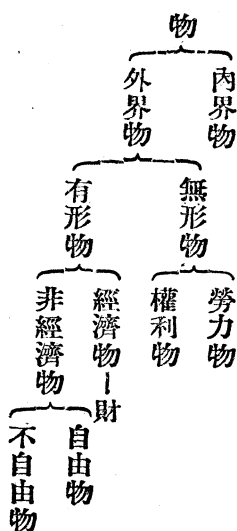 物
內界物
外界物
無形物
有形物
勞力物
權利物
經濟物―財
非經濟物
自由物
不自由物